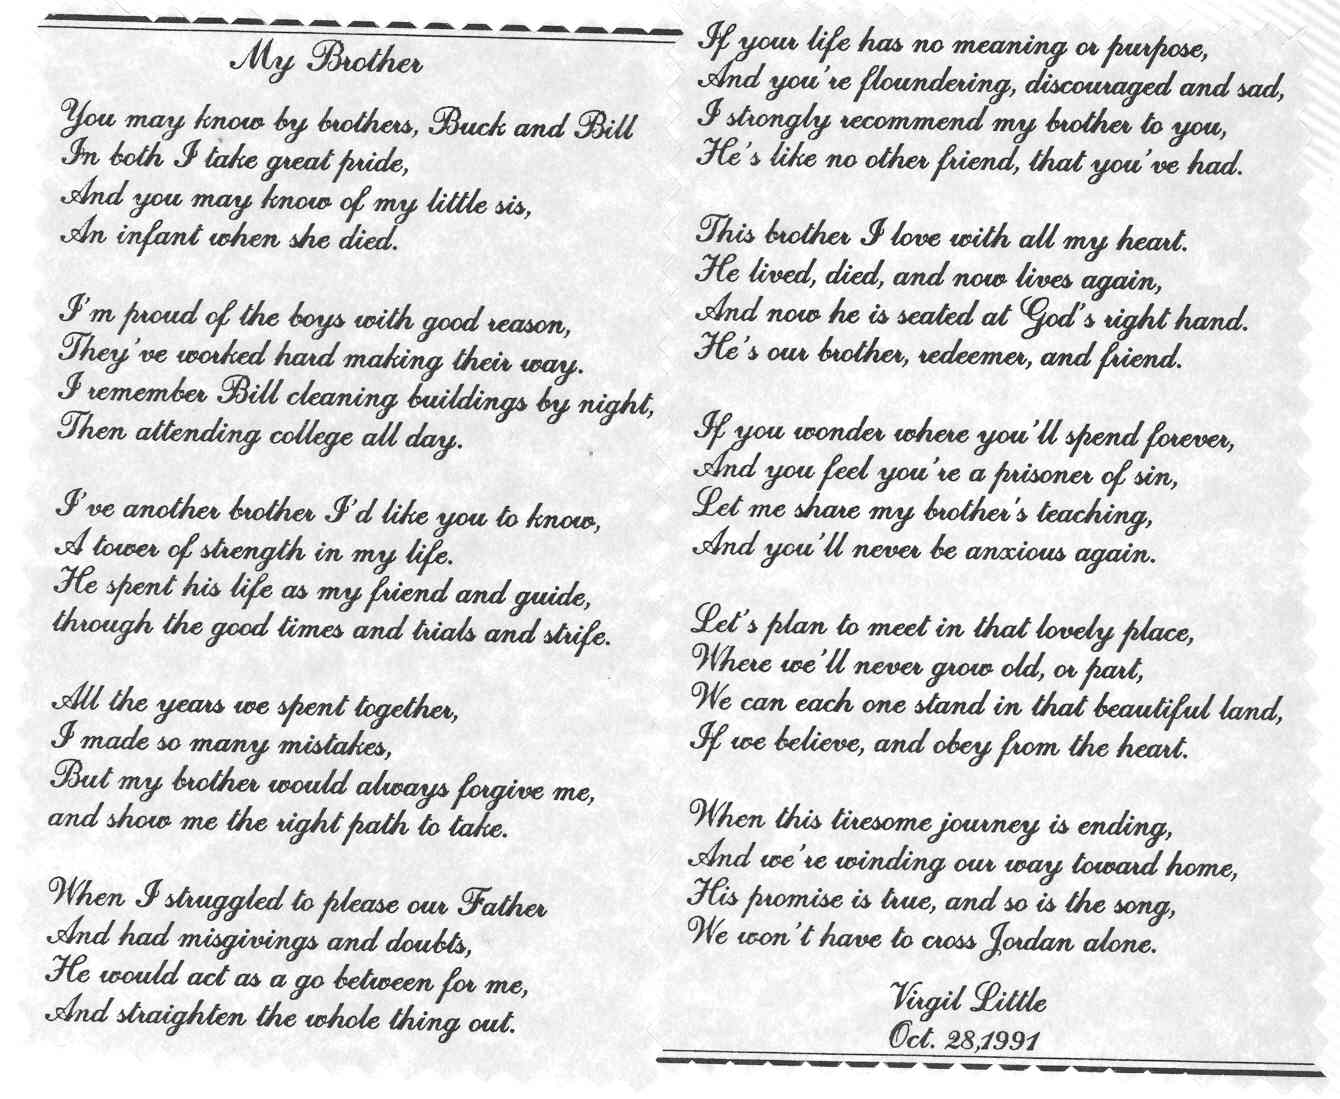 My Brother
You may know by brothers, Buck and Bill
In both I take great pride,
And you may know of my little sis,
An infant when she died.
I'm proud of the boys with good reason,
They've worked hard making their way.
I remember Bill cleaning buildings by night,
Then attending college all day.
I've another brother I'd like you to know,
A tower of strength in my life.
He spent his life as my friend and guide,
through the good times and trials and strife.
All the years we spent together,
I made so many mistakes,
But my brother would always forgive me,
and show me the right path to take.
When I struggled to please our Father
And had misgivings and doubts,
He would act as a go between for me,
And straighten the whole thing out.
If your life has no meaning or purpose,
And you're floundering, discouraged and sad,
I strongly recommend my brother to you,
He's like no other friend, that you've had.
This brother I love with all my heart.
He lived, died, and now lives again,
And now he is seated at God's right hand.
He's our brother, redeemer, and friend.
If you wonder where you'll spend forever,
And you feel you're a prisoner of sin,
Let me share my brother's teaching,
And you'll never be anxious again.
Let's plan to meet in that lovely place,
Where we'll never grow old, or part,
We can each one stand in that beautiful land,
If we believe, and obey from the heart.
When this tiresome journey is ending,
And we're winding our way toward home,
His promise is true, and so is the song,
We won't have to cross Jordan alone.
Virgil Little
Oct. 28,1991